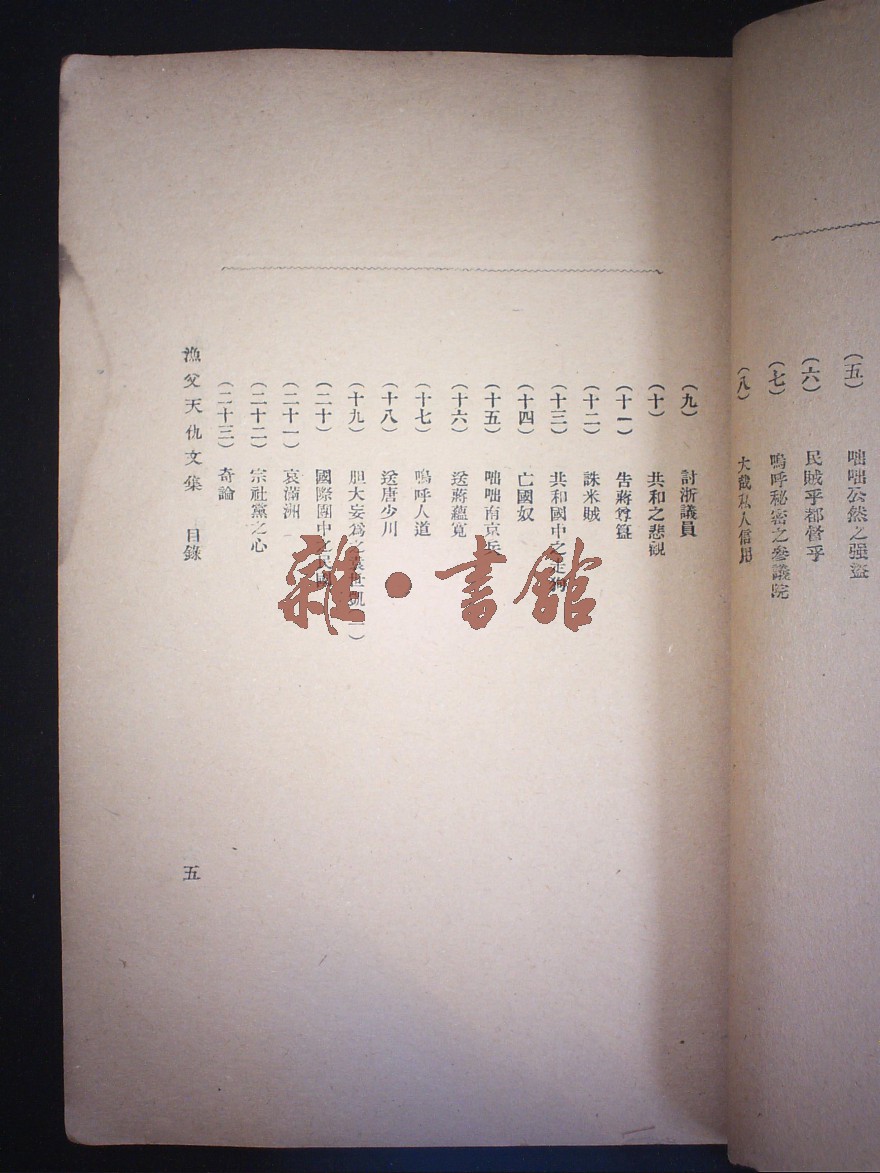 (五) 咄咄公然之强盜
(六) 民賊乎都督乎
(七) 嗚呼秘密之參議院
(八) 大哉私人信用
(九) 討浙議員
(十) 共和之悲觀
(十一) 告蔣尊簋
(十二) 誅米賊
(十三) 共和國中之走狗
(十四) 亡國奴
(十五) 咄咄南京兵
(十六) 送蔣蘊寬
(十七) 嗚呼人道
(十八) 送唐少川
(十九) 胆大妄爲之袁世凱(一)
(二十) 國際團中之民國
(二十一) 哀滿洲
(二十二) 宗社黨之心
(二十三) 奇論
漁父天仇文集 目錄 五
雜·書館